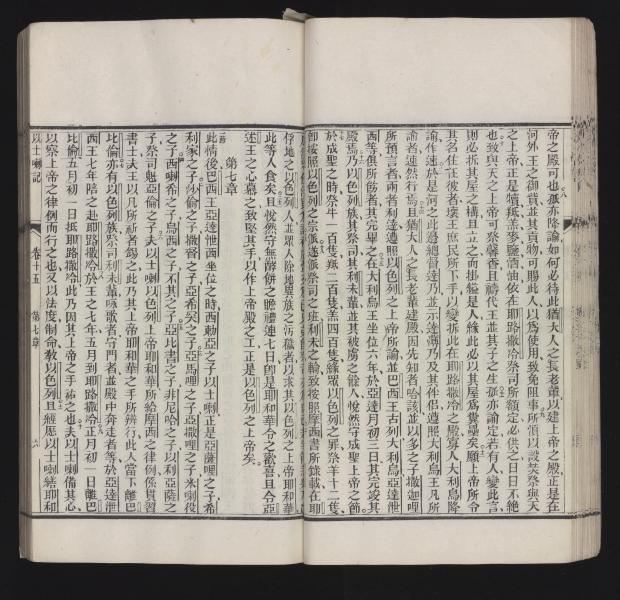 帝之殿可也孤亦降諭如何必待此猶大人之長老輩以建上帝之殿正是在
河外王之御貨並其貢物可賜此人以爲使用致免阻事所須以設焚祭與天
之上帝正是犢羝羔麥鹽酒油依在耶路撒冷祭司所額定必供之日日不絶
也致與天之上帝可祭馨香且禱代王並其子之生孤亦諭定若有人變此言
則必拆其屋之構且立之而掛縊是人緣此必以其屋爲糞壤矣願上帝所令
其名住在彼者壞王庶民所下手以變拆此在耶路撒冷之殿寡人大利烏降
諭作速於是河之此邊總督達乃並示達薄乃及其伴侶遵照大利烏王凡所
諭者速然行焉且猶大人之長老輩建殿因先知者哈該並以多之子撒迦哩
所預言者兩者利達遵照以色列之上帝所諭並巴西王古列大利烏亞達泄
西等俱所飭者其完畢之在大利烏王坐位六年於亞達月初三日其完竣其
殿焉乃以色列族其祭司其利未輩並其被虜之餘人悅然守成聖上帝之節
於成聖之時祭牛一百隻羝二百隻羔四百隻緣眾以色列之罪祭羊十二隻
卽按照以色列之宗派遂派祭司之班利未之輪致按照摩西書所錄載在耶
俘地之以色列人並眾人除地異族之污穢者以求其以色列之上帝耶和華
此等人食矣且悅然守無酵餅之瞻禮連七日卽是耶和華令之歡喜且令亞
述王之心慕之致堅其手以作上帝殿之工正是以色列之上帝矣
第七章
此情後巴西王亞達泄西坐位之時西勅亞之子以士喇正是亞薩哩之子希
利家之子沙倫之子撒督之子亞希突之子亞馬哩之子亞撒哩之子米喇役
之子西喇希之子烏西之子不其之子亞比書之子非尼哈之子以利亞薩之
子祭司魁亞倫之子夫以士喇以色列上帝耶和華所給摩西之律例係貫習
書士夫王以凡所祈者錫之此乃其上帝耶和華之手所辨行此人當下離巴
比倫亦有以色列族祭司利未輩咏歌者守門者並殿中奔走者等於亞達泄
西王七年陪之赴耶路撒冷於王之七年五月到耶路撒冷正月初一日離巴
比倫五月初一日抵耶路撒冷此乃因其上帝之手祐之也夫以士喇備其心
以察上帝之律例而行之也又以法度制命教以色列且經慝以士喇繕耶和
以士喇記
卷十五
第七章
六